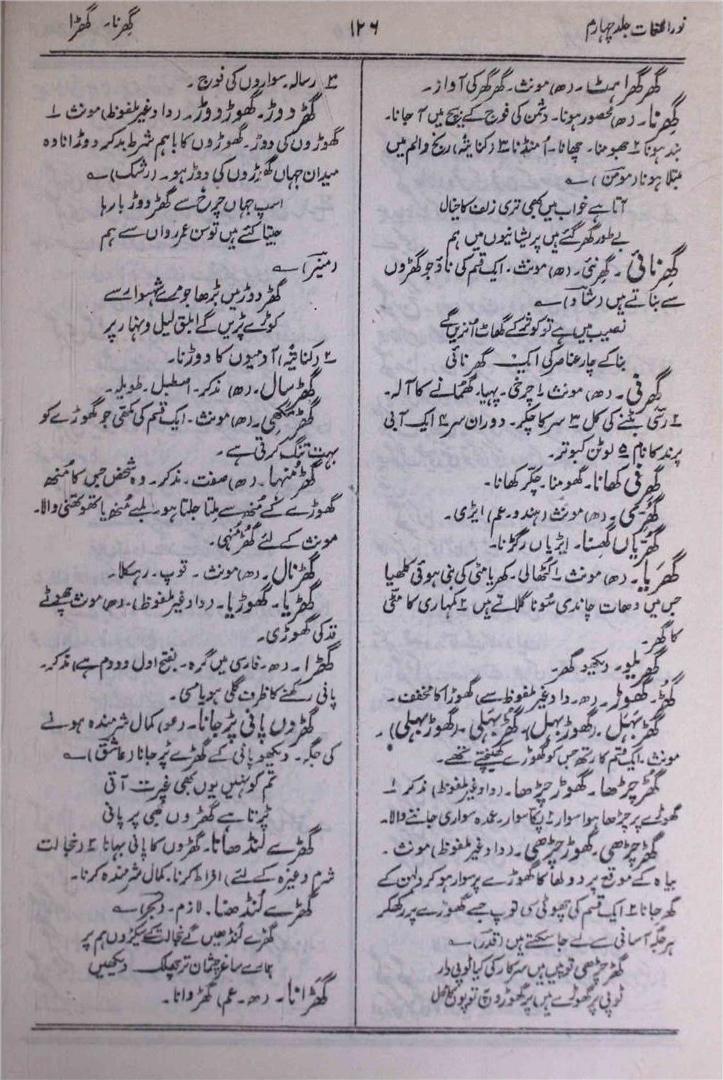 نور اللغات جلد چہارم
۱۲۶
گھرنا۔ گھڑا
گھرگھراہٹ۔ (ھ) مونث۔ گھر گھر کی آواز۔
گھِرنا۔ (ھ) محصور ہونا۔ دشمن کی فوج کے بیچ میں آجانا۔
بند ہونا ۲ جھومنا۔ چھانا۔ اُمنڈنا ۳ (کنایۃً) رنج و الم میں
مبتلا ہونا (مومن) ؎
آتا ہے خواب میں بھی تری زلف کا خیال
بے طور گھر گئے ہیں پریشانیوں میں ہم
گھِرنائی۔ گھرنئی۔ (ھ) مونث۔ ایک قسم کی ناؤ جو گھڑوں
سے بناتے ہیں (شاد) ؎
نصیب میں ہے تو کوثر کے گھاٹ اُتریں گے
بنا کے چار عناصر کی ایک گھرنائی
گھِرنی۔ (ھ) مونث ۱ چرخی۔ پہیا۔ گھمانے کا آلہ۔
۲ رسّی بٹنے کی کل ۳ سر کا چکر۔ دوران سر ۴ ایک آبی
پرند کا نام ۵ لوٹن کبوتر۔
گھِرنی کھانا۔ گھومنا۔ چکر کھانا۔
(ھ) مونث (ہندو۔ عم) ایڑی۔
گھسنا۔ ایڑیاں رگڑنا۔
گھریا۔ (ھ) مونث ۱ کٹھالی۔ کھریا مٹی کی بنی ہوئی کٹھیا
جس میں دھات چاندی سونا گلاتے ہیں ۲ کمہاری کا مٹی
کا گھر۔
گھریلو۔ دیکھو گھر۔
گھڑ۔ گھوڑ۔ (ھ۔ واو غیر ملفوظ سے) گھوڑا کا مخفف۔
گھڑبہل۔ (گھوڑ بہل) گھڑبہلی۔ (گھوڑ بہلی)۔
مونث۔ ایک قسم کا رتھ جس کو گھوڑے کھینچتے تھے۔
گھڑچڑھا۔ گھوڑ چڑھا۔ (واو غیر ملفوظ) مذکر ۱
گھوڑے پر چڑھا ہوا سوار ۲ پکا سوار۔ عمدہ سواری جاننے والا۔
گھڑچڑھی۔ گھوڑ چڑھی۔ (واو غیر ملفوظ) مونث۔
بیاہ کے موقع پر دولھا کا گھوڑے پر سوار ہو کر دلہن کے
گھر جانا ۲ ایک قسم کی چھوٹی سی توپ جسے گھوڑے پر رکھکر
ہر جگہ آسانی سے لے جا سکتے ہیں (قدر) ؎
گھڑ چڑھی توپیں ہیں سرکار کی کیا توپیں دار
توپ پر گھوڑے ہیں پر گھوڑ
۳ رسالہ۔ سواروں کی فوج۔
گھڑ دوڑ۔ گھوڑ دوڑ۔ (واو غیر ملفوظ) مونث ۱
گھوڑوں کی دوڑ۔ گھوڑوں کا باہم شرط بدکر دوڑانا وہ
میدان جہاں گھوڑوں کی دوڑ ہو۔ (رشک) ؎
اسپ جہاں چرخ سے گھڑ دوڑ بارہا
جیتا کئے ہیں توسن عمر رواں سے ہم
(منیر) ؎
گھڑ دوڑ میں بڑھا جو مرے شہسوار سے
کوڑے پڑیں گے ابلق لیل و نہار پر
۲ (کنایۃً) آدمیوں کا دوڑنا۔
گھڑسال۔ (ھ) مذکر۔ اصطبل۔ طویلہ۔
گھڑمکھی۔ (ھ) مونث۔ ایک قسم کی مکھی جو گھوڑے کو
بہت تنگ کرتی ہے۔
گھڑمُنہا۔ (ھ) صفت۔ مذکر۔ وہ شخص جس کا منھ
گھوڑے کے منھ سے ملتا جلتا ہو۔ لمبے منھ یا تھوتھنی والا۔
مونث کے لئے گھڑمُنہی۔
گھڑنال۔ (ھ) مونث۔ توپ۔ رہکلا۔
گھڑیا۔ گھوڑیا۔ (واو غیر ملفوظ) (ھ) مونث چھوٹے
قد کی گھوڑی۔
گھڑا۔ (ھ۔ فارسی میں گرہ۔ بفتح اول و دوم ہے) مذکر۔
پانی رکھنے کا ظرف گلی ہو یا مسی۔
گھڑوں پانی پڑ جانا۔ (عو) کمال شرمندہ ہونے
کی جگہ۔ دیکھو پانی کے گھڑے پڑ جانا (عاشق) ؎
تم کو نہیں یوں بھی غیرت آتی
پڑتا ہے گھڑوں بھی پر پانی
گھڑے لنڈھانا۔ گھڑوں کا پانی بہانا ۲ (خجالت
شرم وغیرہ کے لئے) افراط کرنا۔ کمال شرمندہ کرنا۔
گھڑے لُنڈھنا۔ لازم۔ (بحر) ؎
گھڑے لنڈھیں گے خجالت کے سیکڑوں ہم پر
ہمارے ساغر چشمان تر چھلک دیکھیں
گھڑانا۔ (ھ۔ عم) گھڑوانا۔